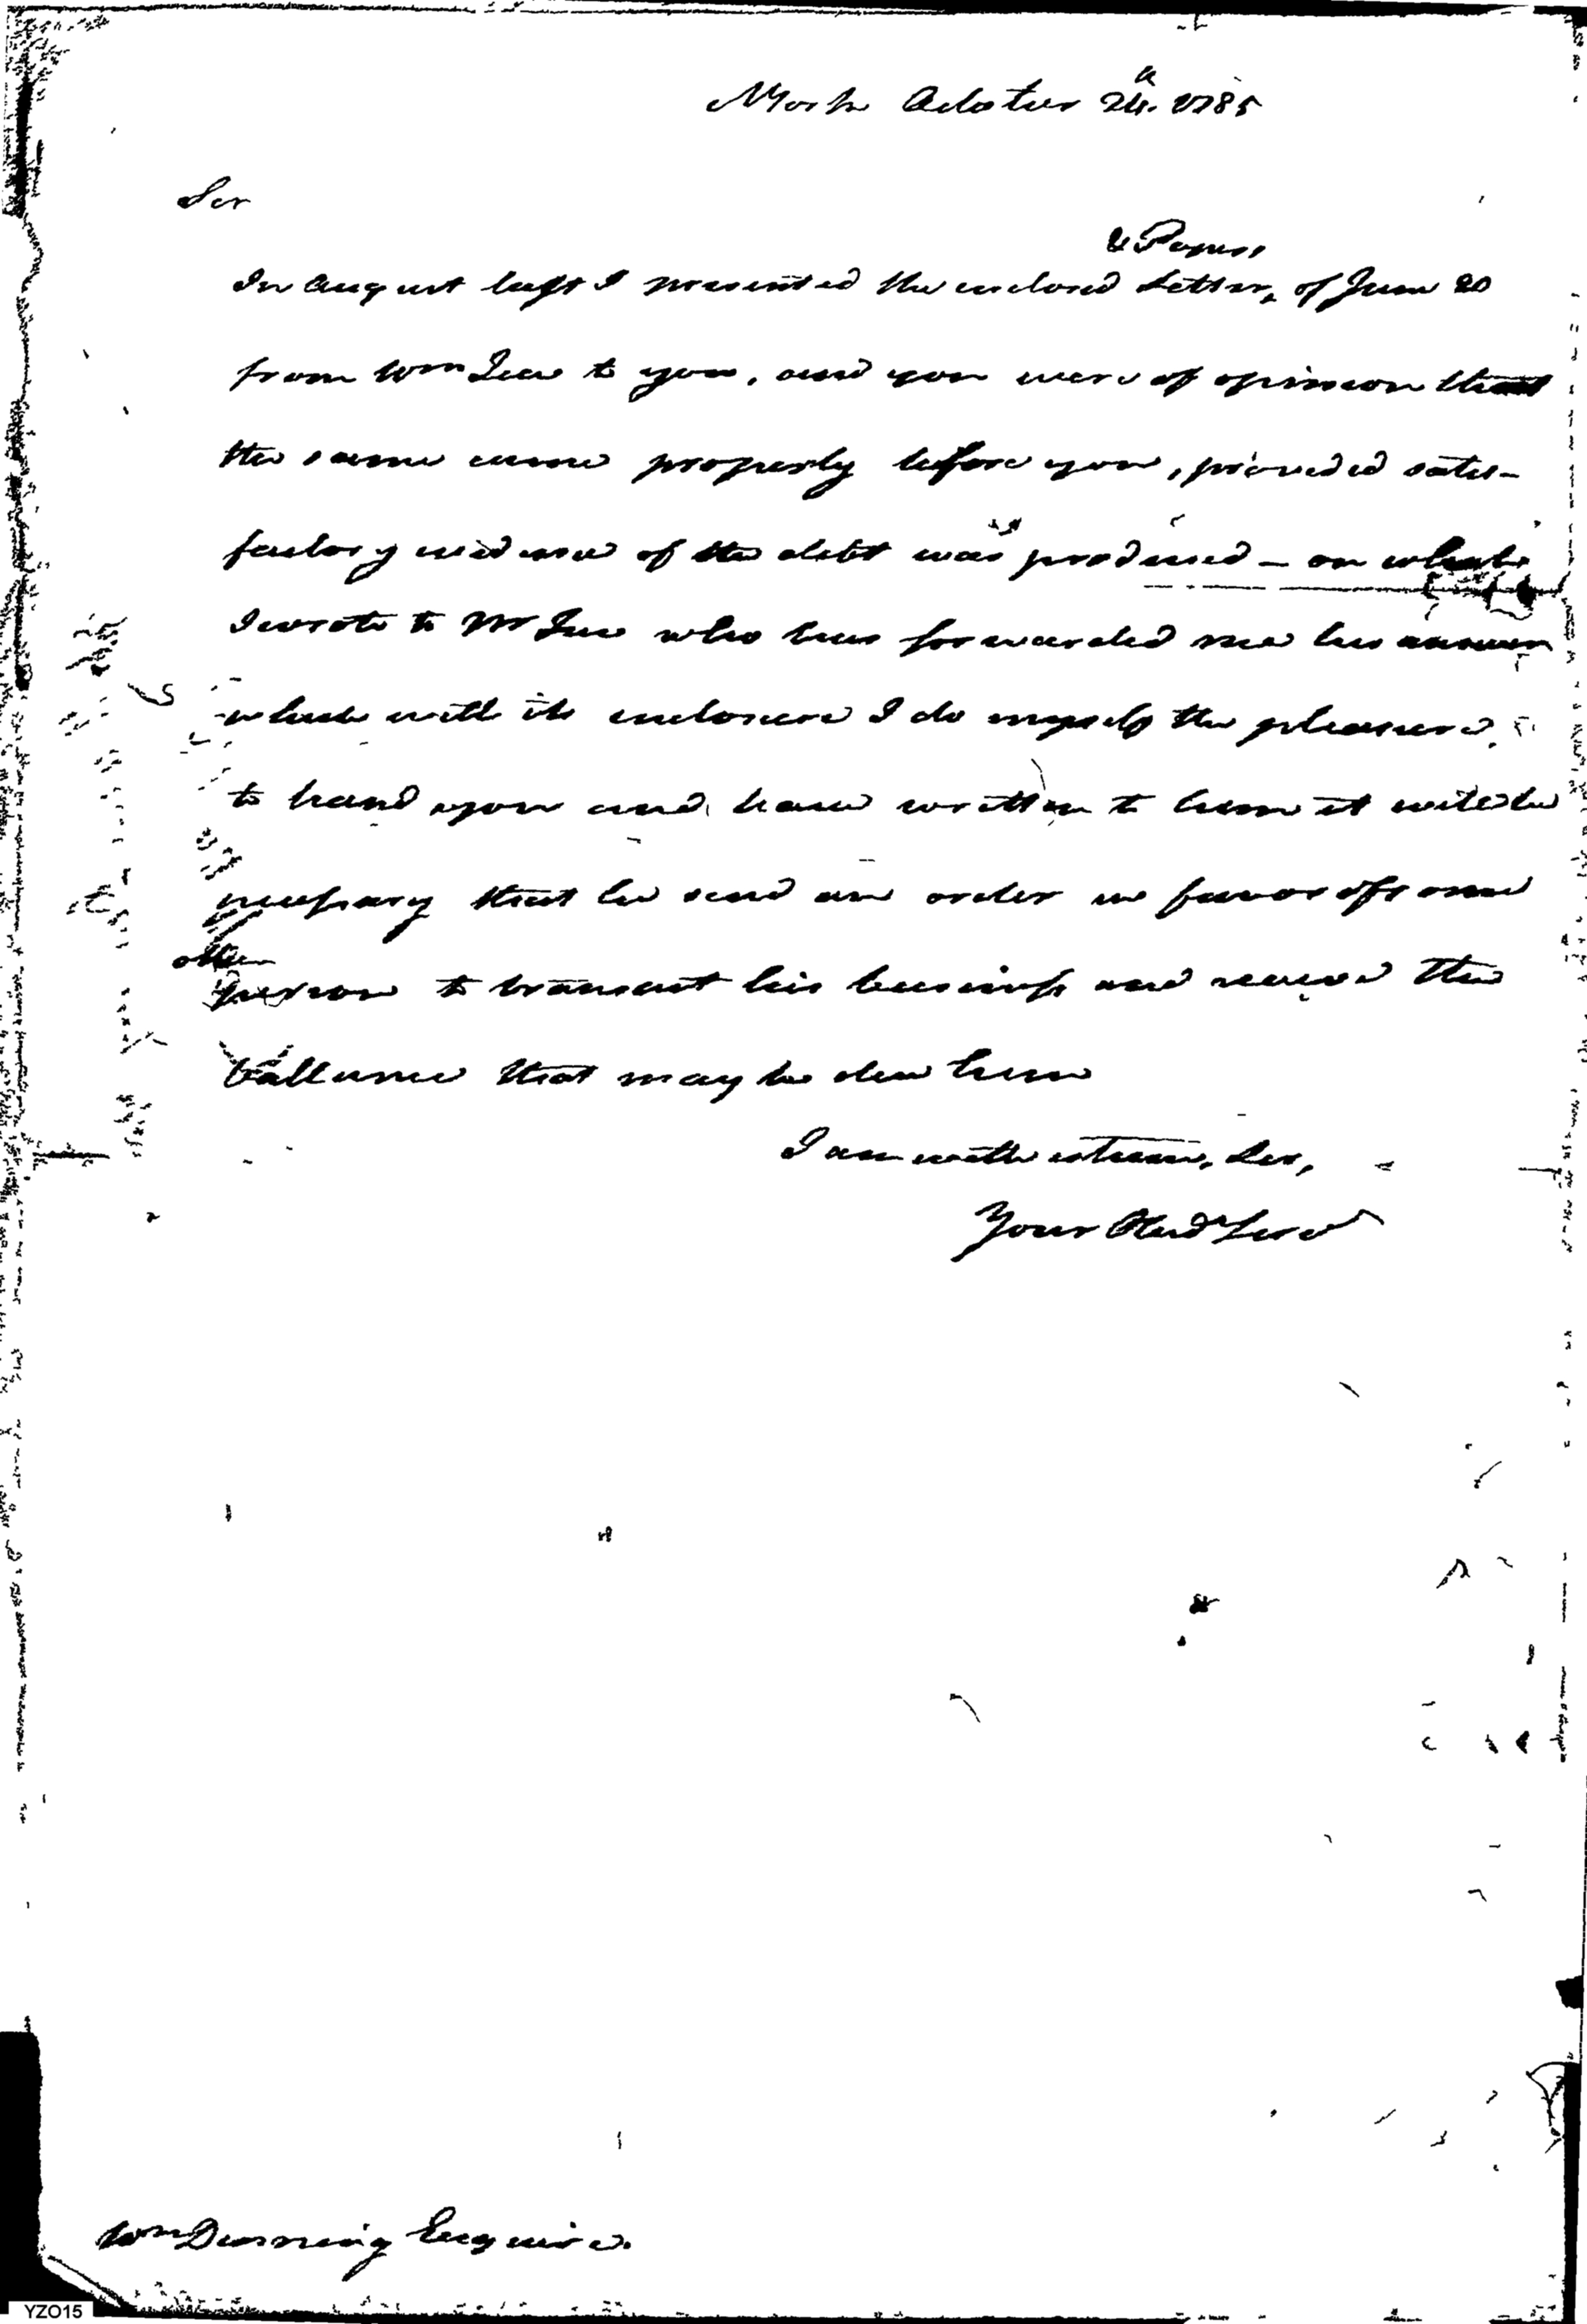 NYork October 24th 1785
Sir
& Papers
In August last I presented the enclosed Letter, of June 20
from Wm Lee to you, and you were of opinion that
the same came properly before you, provided satis-
factory evidence of the debt was produced - on which
I wrote to Mr Lee who has forwarded me his answer
which with its enclosure I do myself the pleasure
to hand you and have written to him it will be
necessary that he send an order in favor of some
other
person to transact his business and receive the
ballance that may be due him
I am with esteem, Sir,
Your Obedt Servt
Wm Denning Esquire.
YZO15